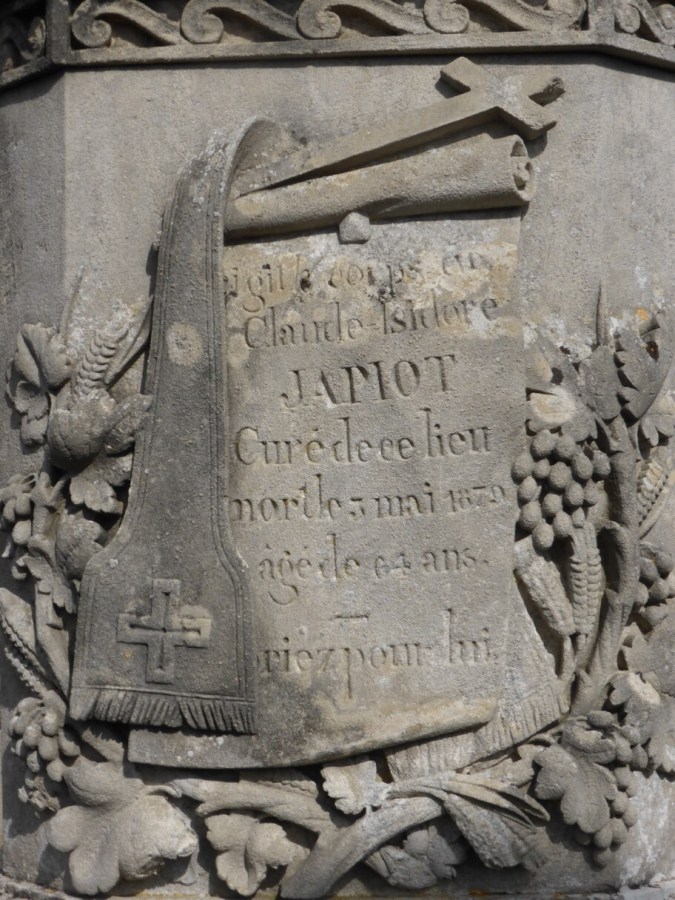 igit le corps de
Claude-Isidore
JAPIOT
Curé de ce lieu
mort le 3 mai 1839
âgé de 64 ans.
riez pour lui.